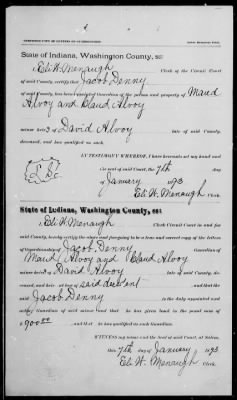 State of Indiana, Washington County, ss:
I Eli W. Menaugh Clerk of the Circuit Court
of said County, certify that Jacob Denny
has been appointed Guardian of the person and property of Maud
Alvoy and Claud Alvoy
minor heirs of David Alvoy late of said County,
deceased, and has qualified as such.
IN TESTIMONY WHEREOF, I have hereunto set my hand and
seal of said court, the 7th day
of January 1893
Eli W. Menaugh Clerk
State of Indiana, Washington County, ss:
I Eli W. Menaugh Clerk of the Circuit Court in and for
said County, hereby certify the above and foregoing to be a true and correct copy of the letters
of Guardianship of Jacob Denny Guardian of
Maud Alvoy and Claud Alvoy
minor heirs of David Alvoy late of said County, de-
ceased, and heir of said decedent and that the
said Jacob Denny is the duly appointed and
acting Guardian of said minor and that he has given bond in the penal sum of
$900.00 and that he has qualified as such Guardian.
WITNESS my name and the seal of said Court, at Salem,
this 7th day of January 1893
Eli W. Menaugh Clerk